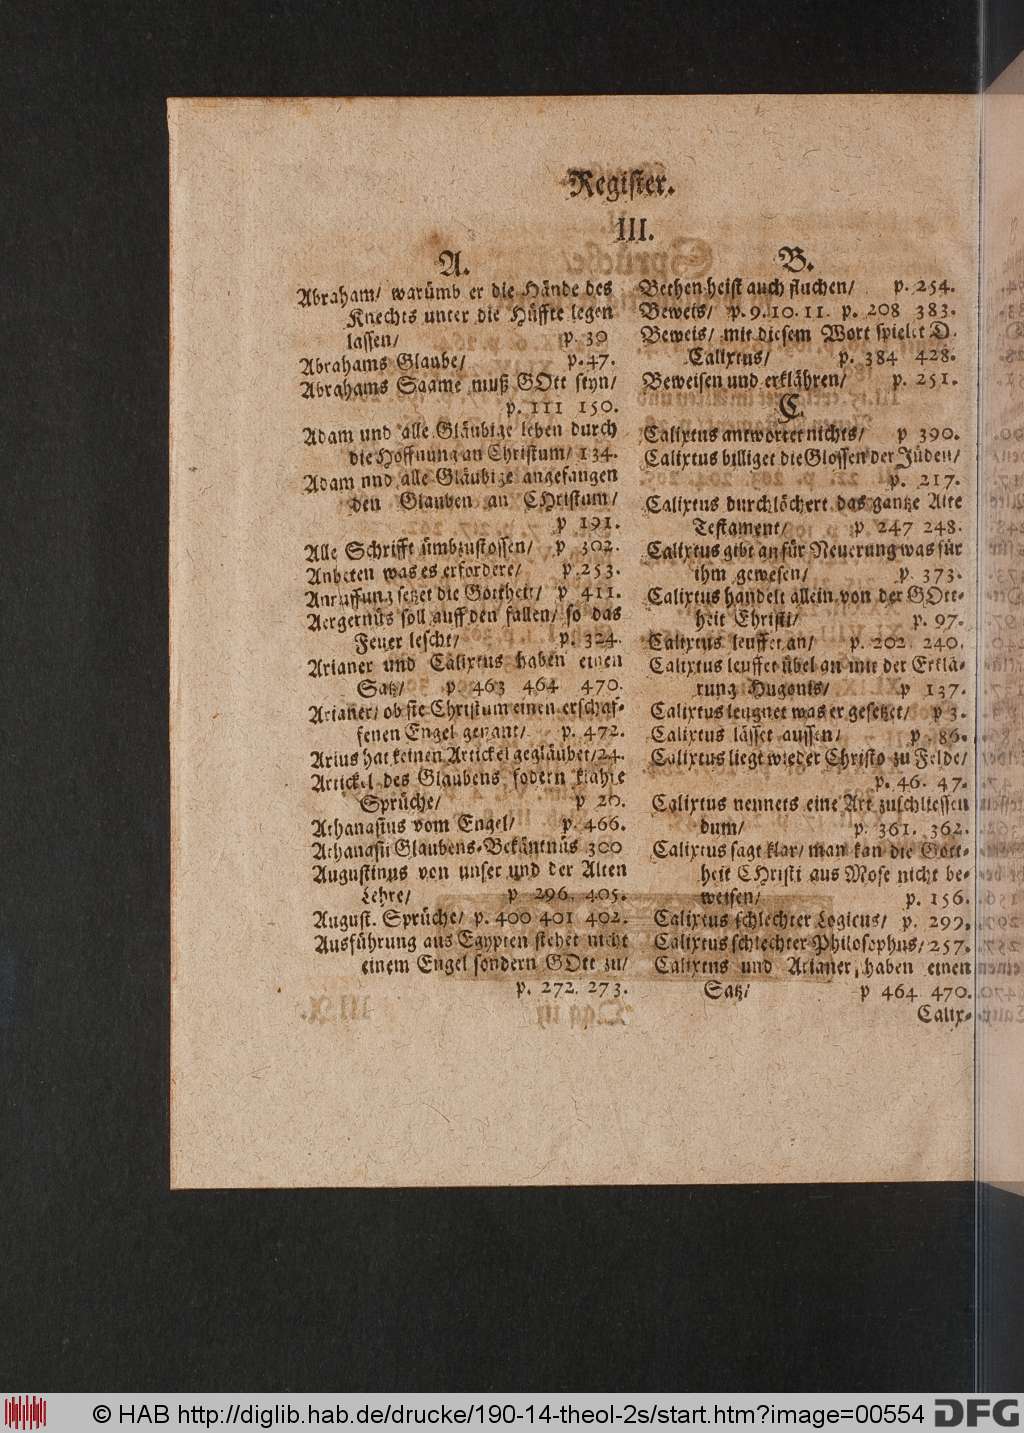 Register.
III.
A.
Abraham/ warümb er die Hände des
Knechts unter die Hüffte legen
lassen/ p. 39
Abrahams Glaube/ p. 47.
Abrahams Saame muß GOtt seyn/
p. 111 150.
Adam und alle Gläubige leben durch
die Hoffnung an Christum/ 134.
Adam nnd alle Gläubige angefangen
den Glauben an CHristum/
p 191.
Alle Schrifft ümbzustossen/ p 302.
Anbeten was es erfordere/ p. 253.
Anruffung setzet die Gottheit/ p 411.
Aergernüs soll auff den fallen/ so das
Feuer lescht/ p. 324.
Arianer und Calixtus haben einen
Satz/ p. 463 464 470.
Arianer/ ob sie Christum einen erschaf-
fenen Engel genant/ p. 472.
Arius hat keinen Artickel gegläubet/ 24.
Artickel des Glaubens fodern klahre
Sprüche/ p 20.
Athanasius vom Engel/ p. 466.
Athanasii Glaubens-Bekäntnüs 300
Augustinus von unser und der Alten
Lehre/ p 296. 405.
August. Sprüche/ p. 400 401 402.
Ausführung aus Egypten stehet nicht
einem Engel sondern GOtt zu/
p. 272. 273.
B.
Bethen heist auch fluchen/ p. 254.
Beweis/ p. 9. 10. 11. p. 208 383.
Beweis/ mit diesem Wort spielet D.
Calixtus/ p. 384 428.
Beweisen und erklähren/ p. 251.
C
Calixtus antwortet nichts/ p 390.
Calixtus billiget die Glossen der Jüden/
p. 217.
Calixtus durchlöchert das gantze Alte
Testament/ p 247 248.
Calixtus gibt an für Neuerung was für
ihm gewesen/ p. 373.
Calixtus handelt allein von der GOtt-
heit Christi/ p. 97.
Calixtus leuffet an/ p. 202 240.
Calixtus leuffet übel an mit der Erklä-
rung Hugonis/ p 137.
Calixtus leugnet was er gesetzet/ p 3.
Calixtus lässet aussen/ p. 86.
Calixtus liegt wieder Christo zu Felde/
p. 46. 47.
Calixtus nennets eine Art zuschliessen
dum/ p. 361. 362.
Calixtus sagt klar/ man kan die Gott-
heit CHristi aus Mose nicht be-
weisen/ p. 156.
Calixtus schlechter Logicus/ p. 299.
Calixtus schlechter Philosophus/ 257.
Calixtns und Arianer haben einen
Satz/ p 464 470.
Calix-
© HAB http://diglib.hab.de/drucke/190-14-theol-2s/start.htm?image=00554
DFG